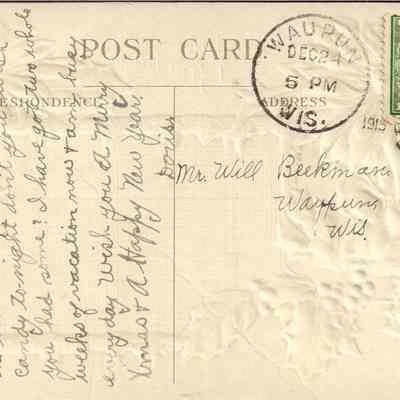 POST CARD
RESPONDENCE
ADDRESS
WAUPUN
DEC 24
5 PM
WIS.
1913
candy to-night don't you wish
you had some? I have got two whole
weeks of vacation now & am busy
every day Wish you a Merry
Xmas & A Happy New Year.
Mr. Will Beekman
Waupun,
Wis.